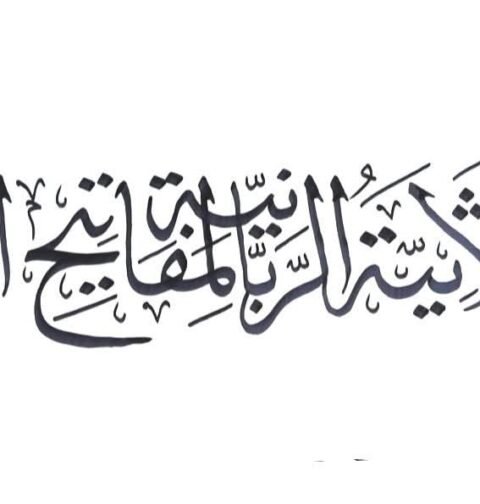 لَاثِيَّةُ الرَّبَّانِيَّة لِمَفَاتِيح